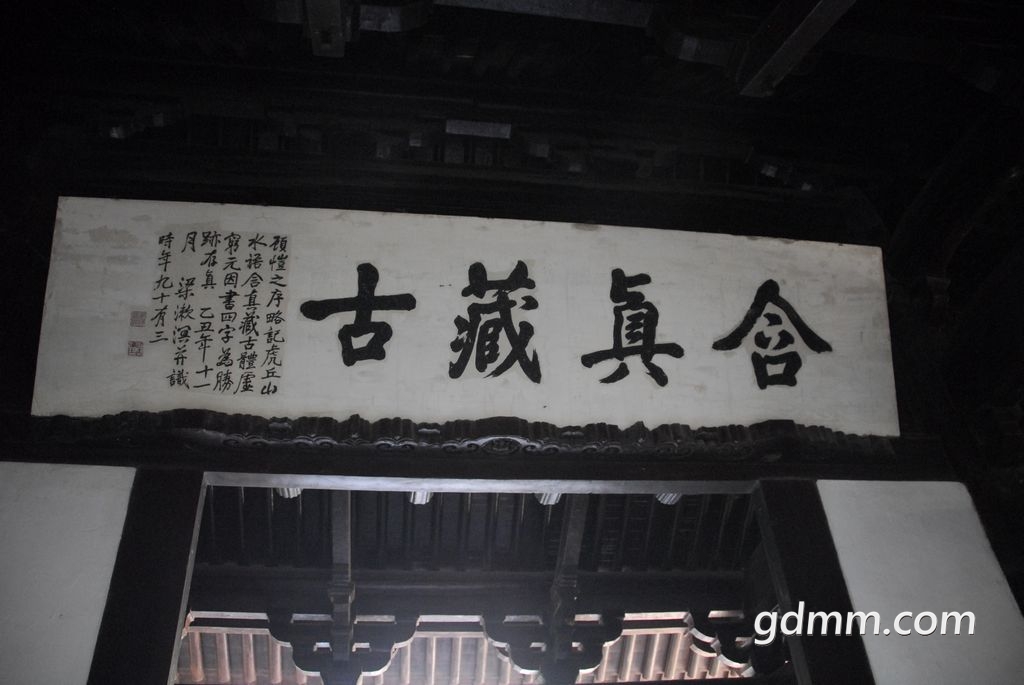 含真藏古
顾恺之序略記虎丘山
水裙含真藏古體虛
窮元因書四字為勝
跡存真 乙丑年十一
月 梁漱溟并識
時年九十有三
gdmm.com